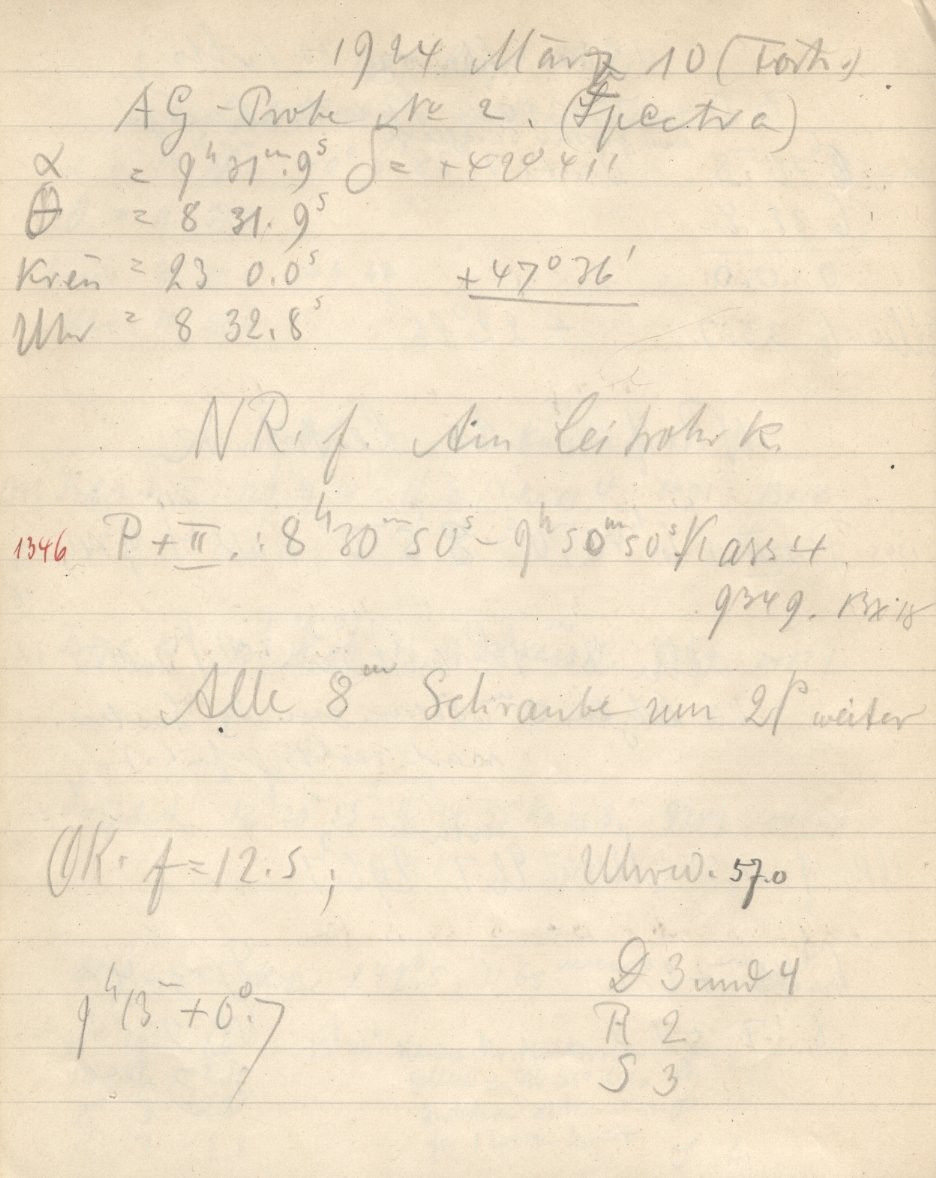 1924 März 10 (Forts.)
AG-Probe No 2. (Spectra)
α = 9h 31m.9s δ = +42° 41'
θ = 8 31.9s
Kreu = 23 0.0s +47° 36'
Uhr = 8 32.8s
NR. f. Am Leitrohr K.
1346 P + II. : 8h 30m 50s - 9h 50m 50s Kass 4
9349. 13x18
Alle 8m Schraube um 2p weiter
OK. f = 12.5; Uhrw. 57.0
D 3 und 4
9h 13m + 0°.7
R 2
S 3